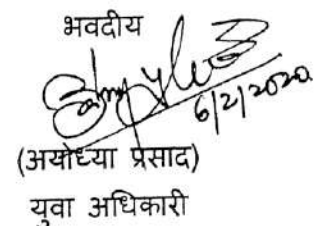 भवदीय
6/2/2020
(अयोध्या प्रसाद)
युवा अधिकारी